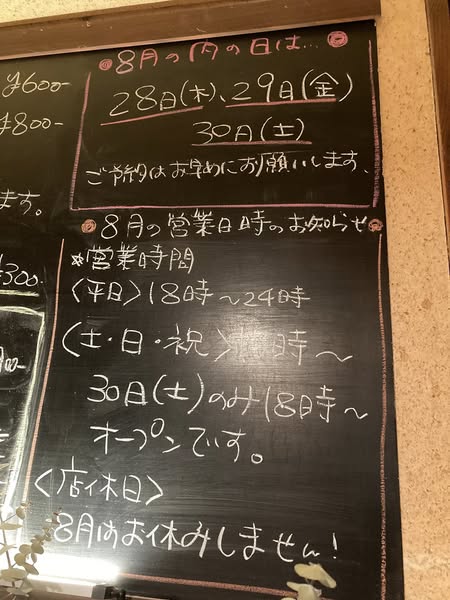 ¥600-
¥800-
ます。
¥300-
8月の肉の日は…
28日(木)、29日(金)
30日(土)
ご予約はお早めにお願いします、
8月の営業日時のお知らせ
*営業時間
〈平日〉18時〜24時
〈土・日・祝〉時〜
30日(土)のみ18時〜
オープンです。
〈店休日〉
8月はお休みしません!